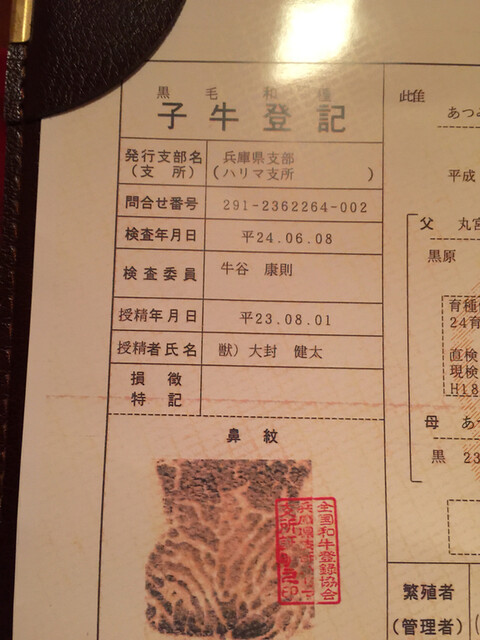 黒毛和種
子牛登記
発行支部名
(支所)
兵庫県支部
(ハリマ支所)
問合せ番号
291-2362264-002
検査年月日
平24.06.08
検査委員
牛谷 康則
授精年月日
平23.08.01
授精者氏名
獣)大封 健太
損徴
特記
鼻紋
全国和牛登録協会
あつ
平成
父 丸宮
黒原
24育
直検
現検
H18
母 あ
黒 23
繁殖者
(管理者)